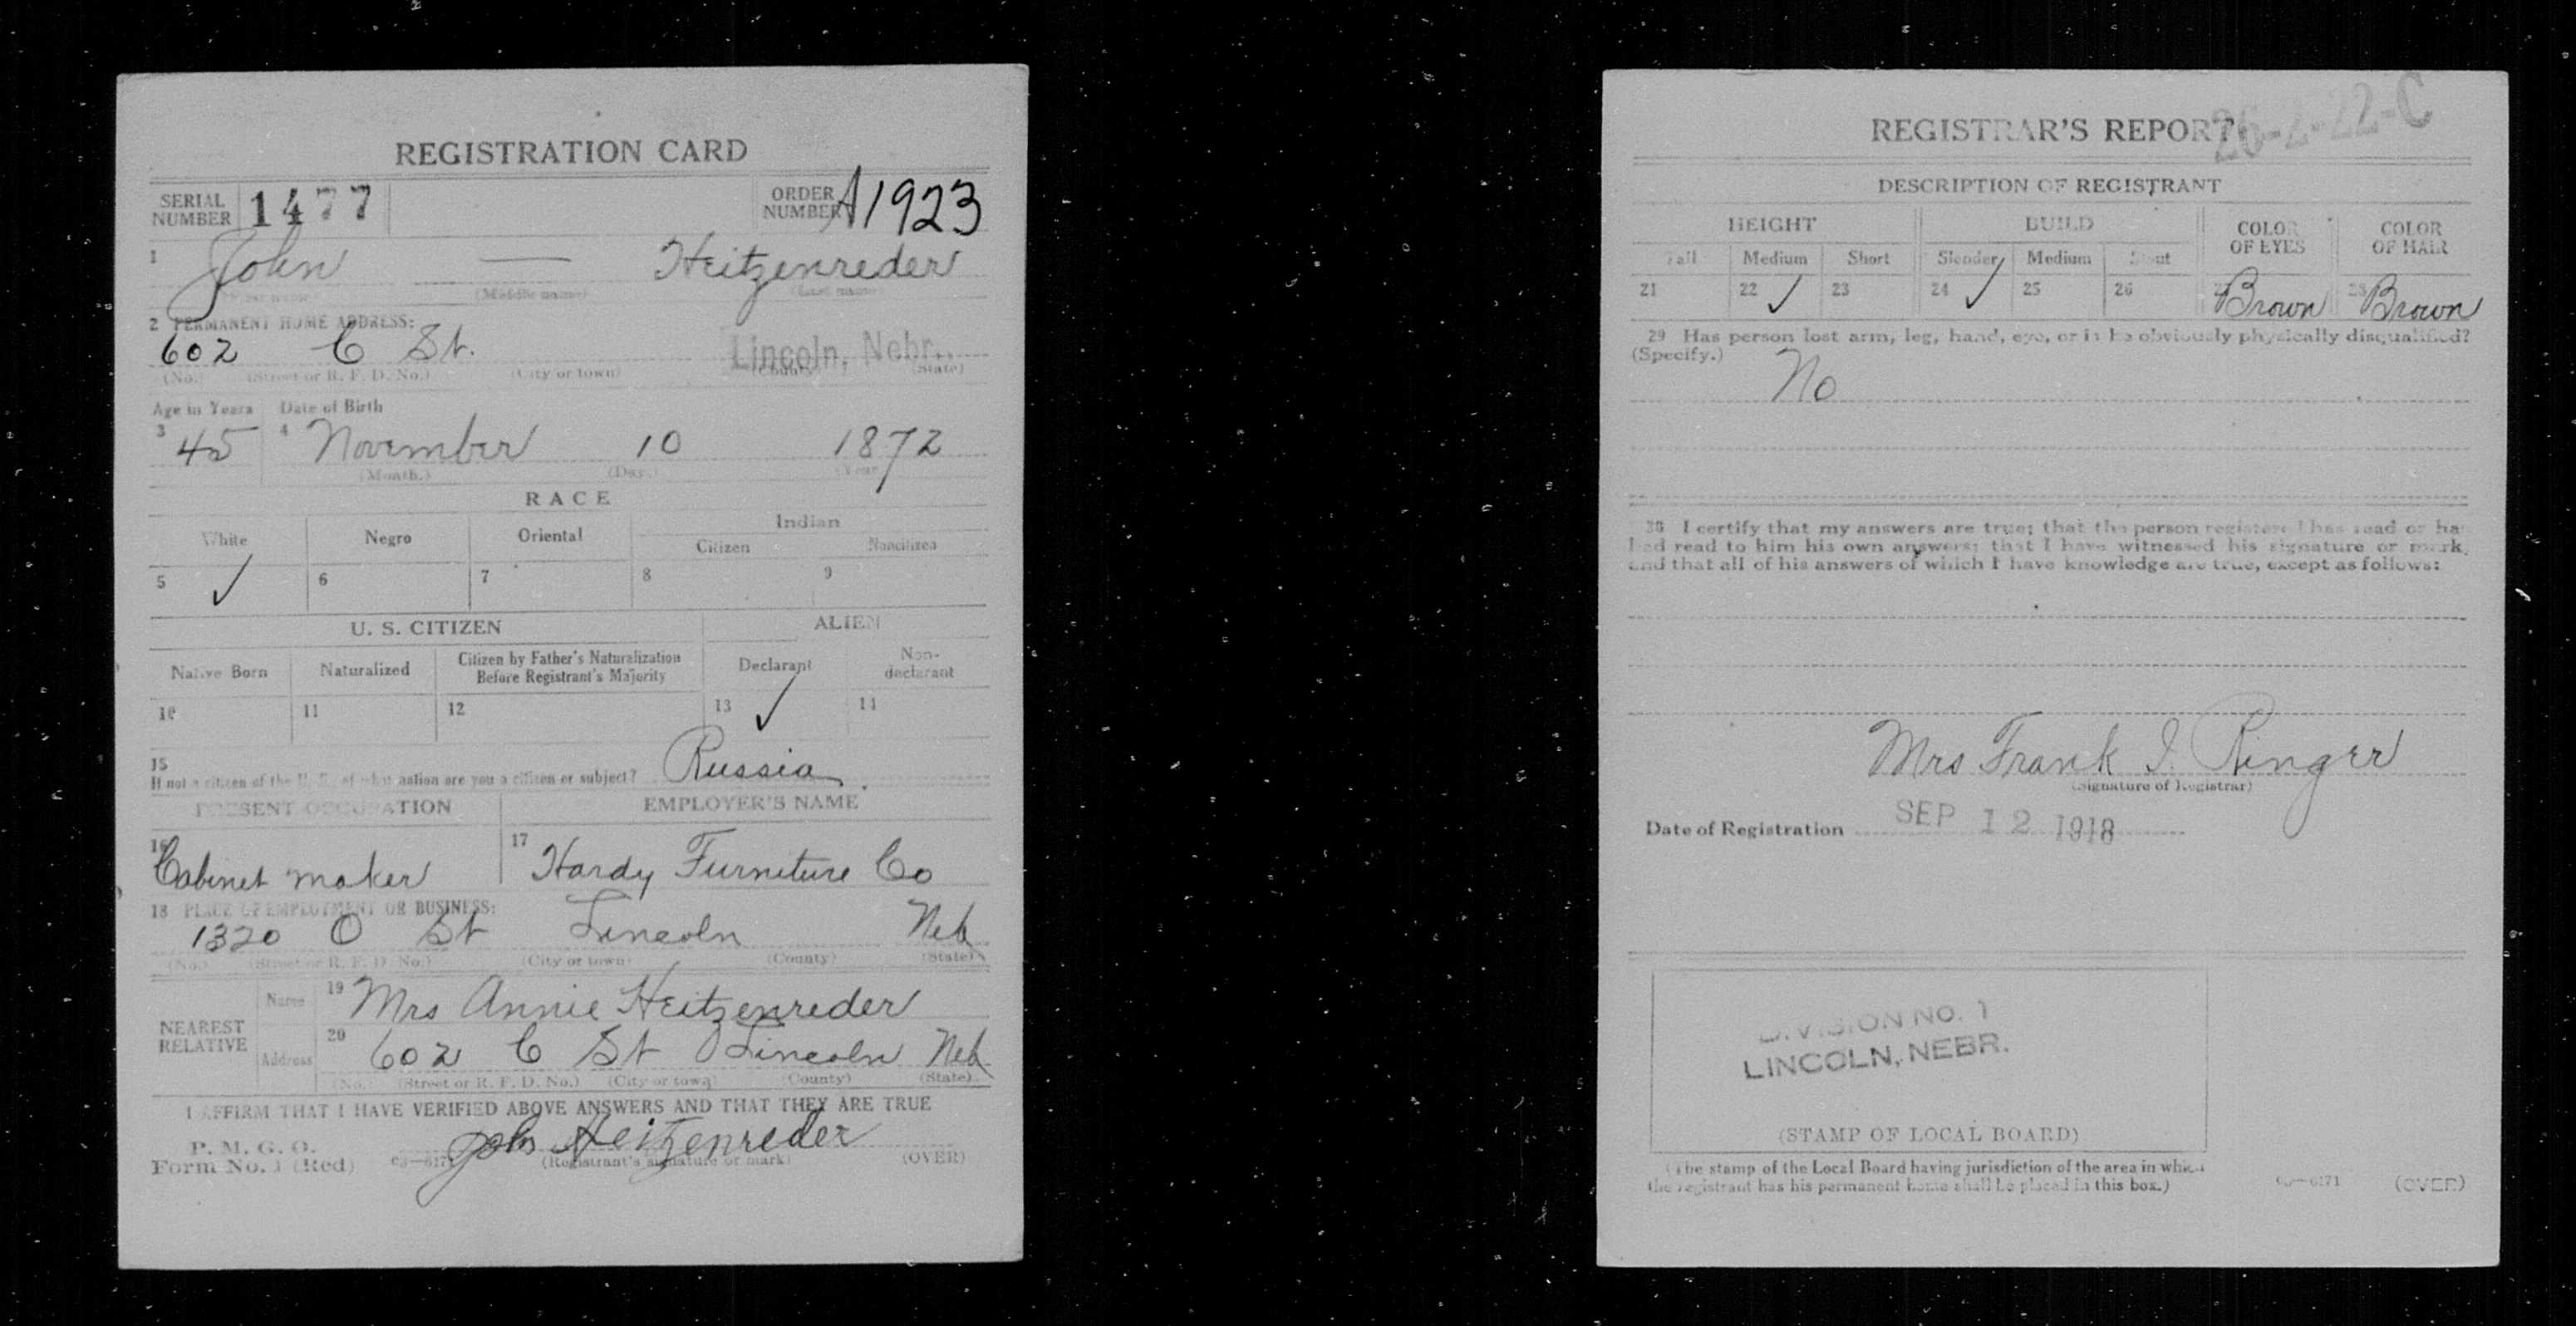 REGISTRATION CARD
SERIAL NUMBER 1477 ORDER NUMBER A1923
1 John — Heitzenreder
(Middle name) (Last name)
2 PERMANENT HOME ADDRESS:
602 C St. Lincoln, Nebr.
(No.) (Street or R. F. D. No.) (City or town) (County) (State)
Age in Years Date of Birth
3 45 4 November 10 1872
(Month.) (Day.) (Year.)
RACE
White Negro Oriental Indian
Citizen Noncitizen
5 ✓ 6 7 8 9
U. S. CITIZEN ALIEN
Native Born Naturalized Citizen by Father's Naturalization Before Registrant's Majority Declarant Non-declarant
10 11 12 13 ✓ 14
15
If not a citizen of the U. S., of what nation are you a citizen or subject? Russia
PRESENT OCCUPATION EMPLOYER'S NAME
16 Cabinet maker 17 Hardy Furniture Co
18 PLACE OF EMPLOYMENT OR BUSINESS:
1320 O St Lincoln Neb
(No.) (Street or R. F. D. No.) (City or town) (County) (State)
NEAREST RELATIVE
Name 19 Mrs Annie Heitzenreder
Address 20 602 C St Lincoln Neb
(No.) (Street or R. F. D. No.) (City or town) (County) (State)
I AFFIRM THAT I HAVE VERIFIED ABOVE ANSWERS AND THAT THEY ARE TRUE
P. M. G. O.
Form No. 1 (Red) John Heitzenreder
(Registrant's signature or mark) (OVER)
REGISTRAR'S REPORT 26-2-22-C
DESCRIPTION OF REGISTRANT
HEIGHT BUILD COLOR OF EYES COLOR OF HAIR
Tall Medium Short Slender Medium Stout
21 22 ✓ 23 24 ✓ 25 26 27 Brown 28 Brown
29 Has person lost arm, leg, hand, eye, or is he obviously physically disqualified?
(Specify.) No
30 I certify that my answers are true; that the person registered has read or has
had read to him his own answers; that I have witnessed his signature or mark,
and that all of his answers of which I have knowledge are true, except as follows:
Mrs Frank I. Ringer
(Signature of Registrar)
Date of Registration SEP 12 1918
DIVISION NO. 1
LINCOLN, NEBR.
(STAMP OF LOCAL BOARD)
(The stamp of the Local Board having jurisdiction of the area in which
the registrant has his permanent home shall be placed in this box.)
03—6171 (OVER)